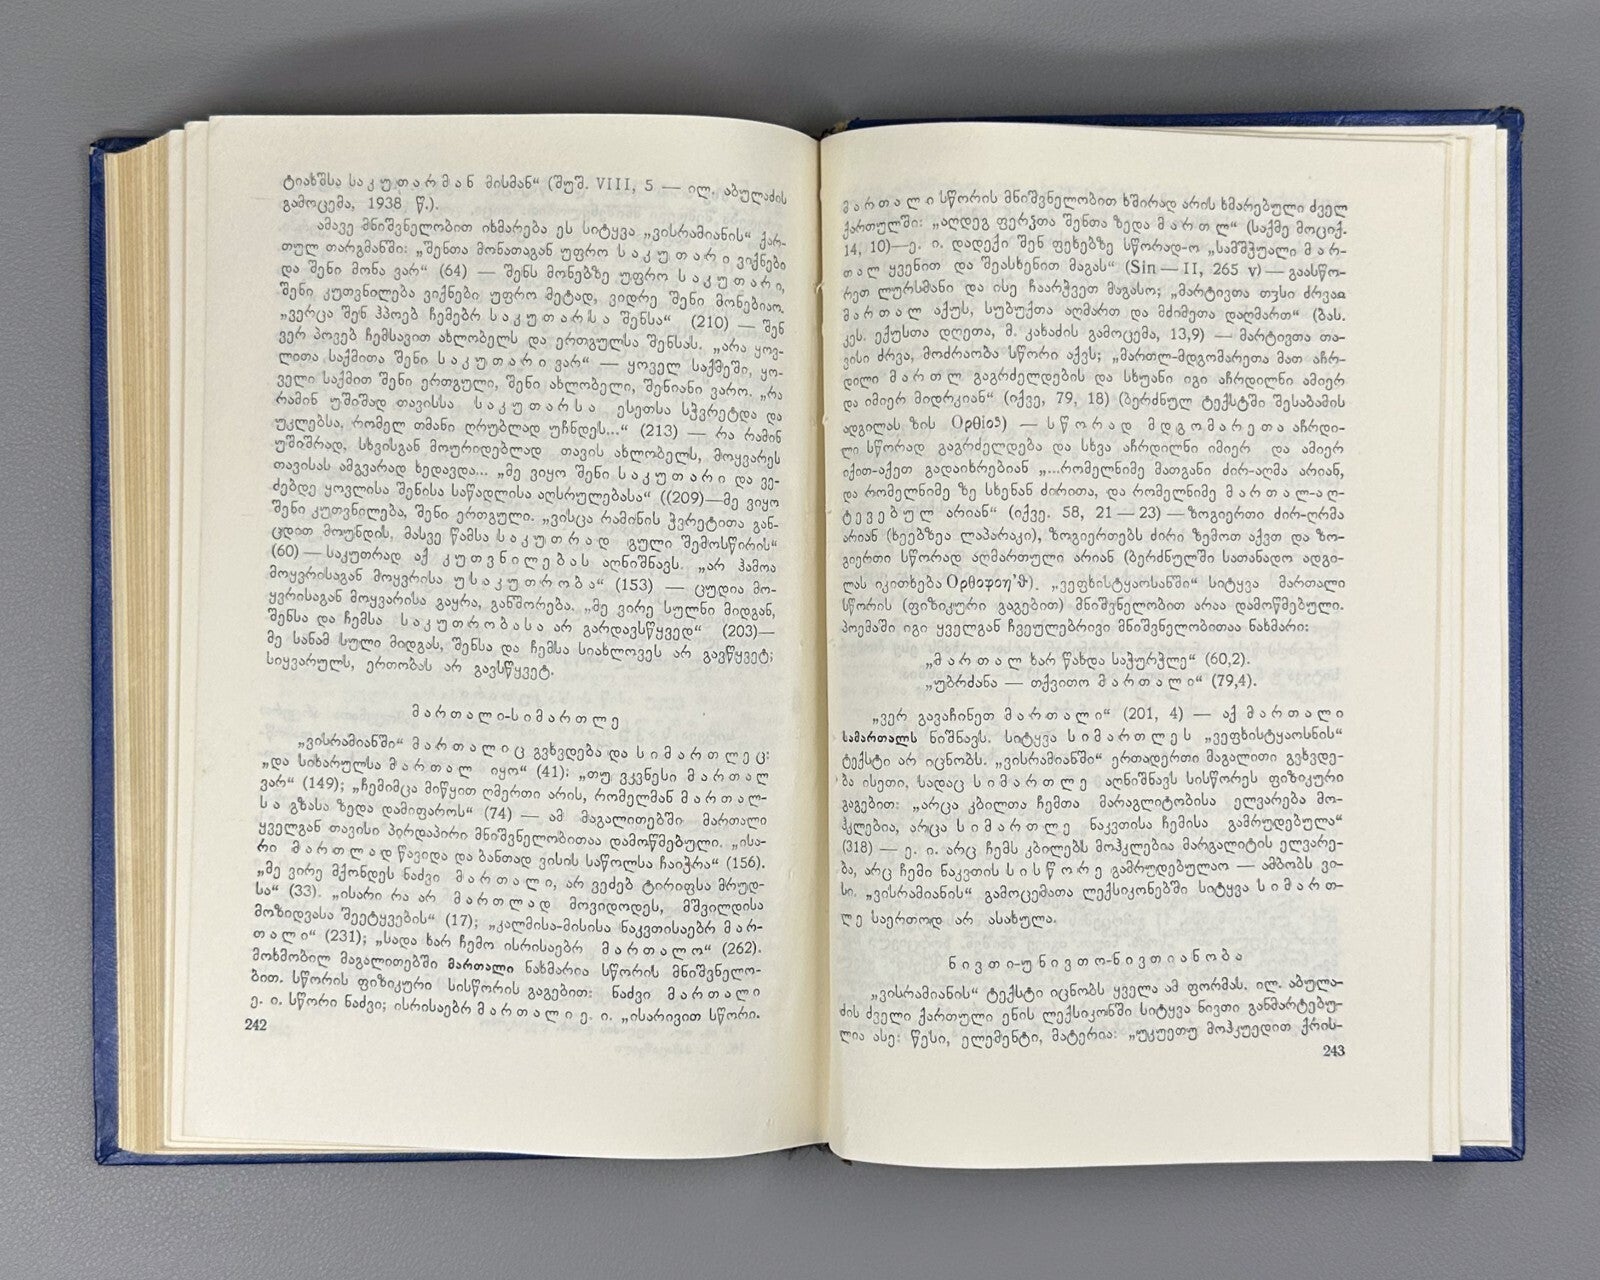 ტიახშსა ს ა კ უ თ ა რ მ ა ნ მისმან“ (შუშ. VIII, 5 — ილ. აბულაძის
გამოცემა, 1938 წ.).
ამავე მნიშვნელობით იხმარება ეს სიტყვა „ვისრამიანის“ ქარ-
თულ თარგმანში: „შენთა მონათაგან უფრო ს ა კ უ თ ა რ ი ვიქნები
და შენი მონა ვარ“ (64) — შენს მონებზე უფრო ს ა კ უ თ ა რ ი,
შენი კუთვნილება ვიქნები უფრო მეტად, ვიდრე შენი მონებიაო.
„ვერცა შენ ჰპოებ ჩემებრ ს ა კ უ თ ა რ ს ა შენსა“ (210) — შენ
ვერ პოვებ ჩემსავით ახლობელს და ერთგულსა შენსას. „არა ყოვ-
ლითა საქმითა შენი ს ა კ უ თ ა რ ი ვარ“ — ყოველ საქმეში, ყო-
ველი საქმით შენი ერთგული, შენი ახლობელი, შენიანი ვარო. „რა
რამინ უშიშად თავისსა ს ა კ უ თ ა რ ს ა ესეთსა სჭვრეტდა და
უკლებსა, რომელ თმანი ღრუბლად უჩნდეს...“ (213) — რა რამინ
უშიშრად, სხვისგან მოურიდებლად თავის ახლობელს, მოყვარეს
თავისას ამგვარად ხედავდა... „მე ვიყო შენი ს ა კ უ თ ა რ ი და ვე-
ძებდე ყოვლისა შენისა საწადლისა აღსრულებასა“ ((209)—მე ვიყო
შენი კუთვნილება, შენი ერთგული. „ვისცა რამინის ჭვრეტითა გან-
ცდით მოუნდის, მასვე წამსა ს ა კ უ თ რ ა დ გული შემოსწირის“
(60) — საკუთრად აქ კ უ თ ვ ნ ი ლ ე ბ ა ს აღნიშნავს. „არ ჰამოა
მოყვრისაგან მოყვრისა უ ს ა კ უ თ რ ო ბ ა“ (153) — ცუდია მო-
ყვრისაგან მოყვარისა გაყრა, განშორება. „მე ვირე სულნი მიდგან,
შენსა და ჩემსა ს ა კ უ თ რ ო ბ ა ს ა არ გარდავსწყვედ“ (203)—
მე სანამ სული მიდგას, შენსა და ჩემსა სიახლოვეს არ გავწყვეტ;
სიყვარულს, ერთობას არ გავსწყვეტ.
მ ა რ თ ა ლ ი-ს ი მ ა რ თ ლ ე
„ვისრამიანში“ მ ა რ თ ა ლ ი ც გვხვდება და ს ი მ ა რ თ ლ ე ც:
„და სიხარულსა მ ა რ თ ა ლ იყო“ (41); „თუ ვკვნესი მ ა რ თ ა ლ
ვარ“ (149); „ჩემიმცა მიწყით ღმერთი არის, რომელმან მ ა რ თ ა ლ-
ს ა გზასა ზედა დამიფაროს“ (74) — ამ მაგალითებში მართალი
ყველგან თავისი პირდაპირი მნიშვნელობითაა დამოწმებული. „ისა-
რი მ ა რ თ ლ ა დ წავიდა და ბანთად ვისის საწოლსა ჩაიჭრა“ (156).
„მე ვირე მქონდეს ნაძვი მ ა რ თ ა ლ ი, არ ვეძებ ტირიფსა მრუდ-
სა“ (33). „ისარი რა არ მ ა რ თ ლ ა დ მოვიდოდეს, მშვილდისა
მოზიდვასა შეეტყვების“ (17); „კალმისა-მისისა ნაკვთისაებრ მ ა რ-
თ ა ლ ი“ (231); „სადა ხარ ჩემო ისრისაებრ მ ა რ თ ა ლ ო“ (262).
მოხმობილ მაგალითებში მართალი ნახმარია სწორის მნიშვნელო-
ბით. სწორის ფიზიკური სისწორის გაგებით: ნაძვი მ ა რ თ ა ლ ი
ე. ი. სწორი ნაძვი; ისრისაებრ მ ა რ თ ა ლ ი ე. ი. „ისარივით სწორი.
242
მ ა რ თ ა ლ ი სწორის მნიშვნელობით ხშირად არის ხმარებული ძველ
ქართულში: „აღდეგ ფერჴთა შენთა ზედა მ ა რ თ ლ“ (საქმე მოციქ.
14, 10)—ე. ი. დადექი შენ ფეხებზე სწორად-ო „სამშჭუალი მ ა რ-
თ ა ლ ყვენით და შეასხენით მაგას“ (Sin — II, 265 v) — გაასწო-
რეთ ლურსმანი და ისე ჩაარჭვეთ მაგასო; „მარტივთა თჳსი ძრვაა
მ ა რ თ ა ლ აქუს, სუბუქთა აღმართ და მძიმეთა დაღმართ“ (ბას.
კეს. ექუსთა დღეთა, მ. კახაძის გამოცემა, 13,9) — მარტივთა თა-
ვისი ძრვა, მოძრაობა სწორი აქეს; „მართლ-მდგომარეთა მათ აჩრ-
დილი მ ა რ თ ლ გაგრძელდების და სხუანი იგი აჩრდილნი ამიერ
და იმიერ მიდრკიან“ (იქვე, 79, 18) (ბერძნულ ტექსტში შესაბამის
ადგილას ზის Ορθιος) — ს წ ო რ ა დ მ დ გ ო მ ა რ ე თ ა აჩრდი-
ლი სწორად გაგრძელდება და სხვა აჩრდილნი იმიერ და ამიერ
იქით-აქეთ გადაიხრებიან „...რომელნიმე მათგანი ძირ-აღმა არიან,
და რომელნიმე ზე სხენან ძირითა, და რომელნიმე მ ა რ თ ა ლ-ა ღ-
ტ ე ვ ე ბ უ ლ არიან“ (იქვე. 58, 21 — 23) — ზოგიერთი ძირ-ღრმა
არიან (ხეებზეა ლაპარაკი), ზოგიერთებს ძირი ზემოთ აქვთ და ზო-
გიერთი სწორად აღმართული არიან (ბერძნულში სათანადო ადგი-
ლას იკითხება). „ვეფხისტყაოსანში“ სიტყვა მართალი
სწორის (ფიზიკური გაგებით) მნიშვნელობით არაა დამოწმებული.
პოემაში იგი ყველგან ჩვეულებრივი მნიშვნელობითაა ნახმარი:
„მ ა რ თ ა ლ ხარ წახდა საჭურჭლე“ (60,2).
„უბრძანა — თქვითო მ ა რ თ ა ლ ი“ (79,4).
„ვერ გავაჩინეთ მ ა რ თ ა ლ ი“ (201, 4) — აქ მ ა რ თ ა ლ ი
სამართალს ნიშნავს. სიტყვა ს ი მ ა რ თ ლ ე ს „ვეფხისტყაოსნის“
ტექსტი არ იცნობს. „ვისრამიანში“ ერთადერთი მაგალითი გვხვდე-
ბა ისეთი, სადაც ს ი მ ა რ თ ლ ე აღნიშნავს სისწორეს ფიზიკური
გაგებით: „არცა კბილთა ჩემთა მარაგლიტობისა ელვარება მო-
ჰკლებია, არცა ს ი მ ა რ თ ლ ე ნაკვთისა ჩემისა გამრუდებულა“
(318) — ე. ი. არც ჩემს კბილებს მოჰკლებია მარგალიტის ელვარე-
ბა, არც ჩემი ნაკვთის ს ი ს წ ო რ ე გამრუდებულაო — ამბობს ვი-
სი. „ვისრამიანის“ გამოცემათა ლექსიკონებში სიტყვა ს ი მ ა რ თ-
ლ ე საერთოდ არ ასახულა.
ნ ი ვ თ ი-უ ნ ი ვ თ ო-ნ ი ვ თ ი ა ნ ო ბ ა
„ვისრამიანის“ ტექსტი იცნობს ყველა ამ ფორმას. ილ. აბულა-
ძის ძველი ქართული ენის ლექსიკონში სიტყვა ნივთი განმარტებუ-
ლია ასე: წესი, ელემენტი, მატერია: „უკუეთუ მოჰკუედით ქრის-
243